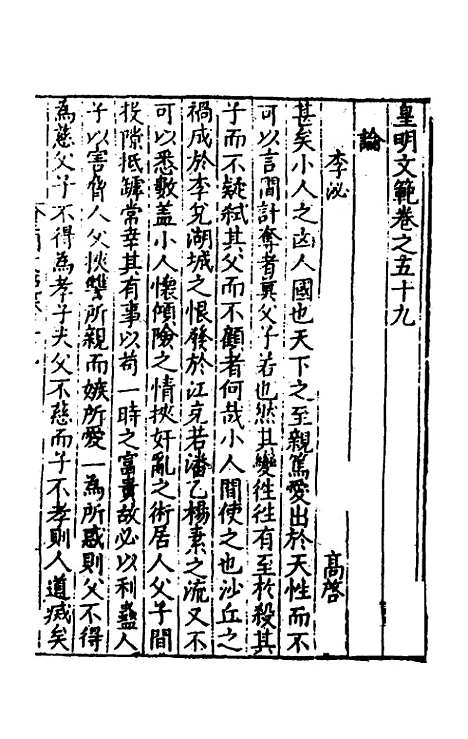 皇明文範卷之五十九
論
李泌 高啓
甚矣小人之凶人國也天下之至親篤愛出於天性而不
可以言間計奪者莫父子若也然其變徃徃有至於殺其
子而不疑弑其父而不顧者何哉小人間使之也沙丘之
禍成於李兌湖城之恨發於江充若潘乙楊素之流又不
可以悉數盖小人懷傾險之情挾奸亂之術居人父子間
投隙抵罅常幸其有事以苟一時之富貴故必以利蠱人
子以害脅人父挾讐所親而嫉所愛一為所惑則父不得
為慈父子不得為孝子夫父不慈而子不孝則人道滅矣